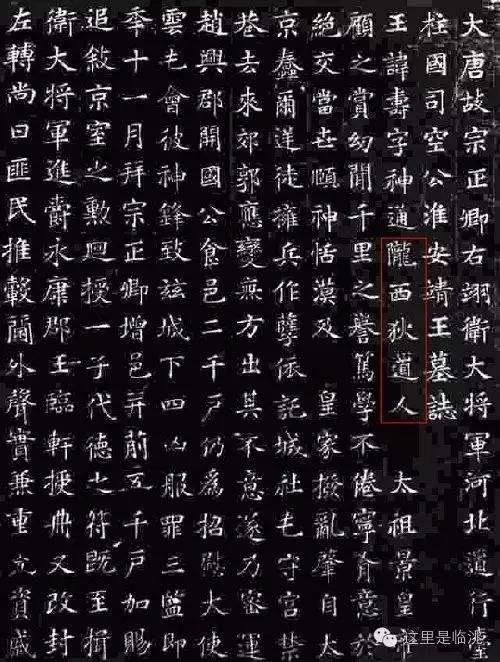 大唐故宗正卿右翊衛大將軍河北道行臺
柱國司空公淮安靖王墓誌
王諱壽字神通隴西狄道人 太祖景皇帝
顧之賞幼聞千里之譽篤學不倦寧意於
絕交當世頤神恬漠及 皇家撥亂肇自太
京蠢爾逆徒擁兵作孽依託城社屯守宮禁
巷去來郊郭應變無方出其不意遂乃密運
趙興郡開國公食邑二千戶仍為招慰大使
雲屯會彼神鋒致茲城下四凶服罪三監即
季十一月拜宗正卿增邑并前五千戶加賜
追敘京室之勳迴授一子代德之符既至揖
衛大將軍進爵永康郡王臨軒授冊又改封
左轉尚曰匪民推轂閫外聲實兼重允資戚
这里是临洮